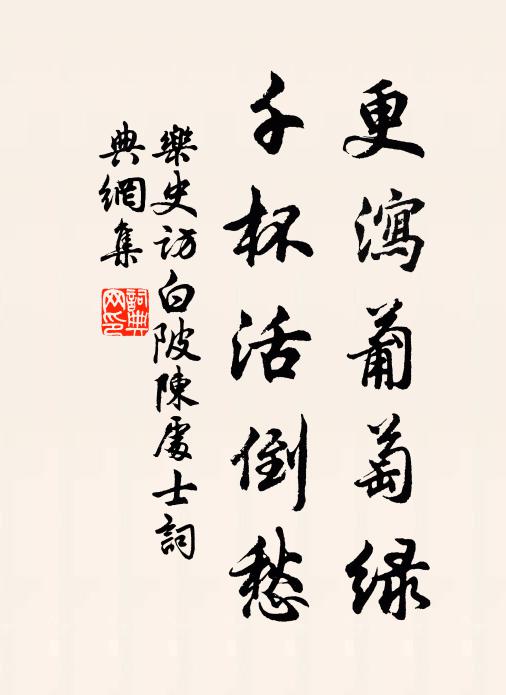 更瀉葡萄緑
千杯活倒愁
樂史訪白陂陳處士詞
典網集
詞典網印